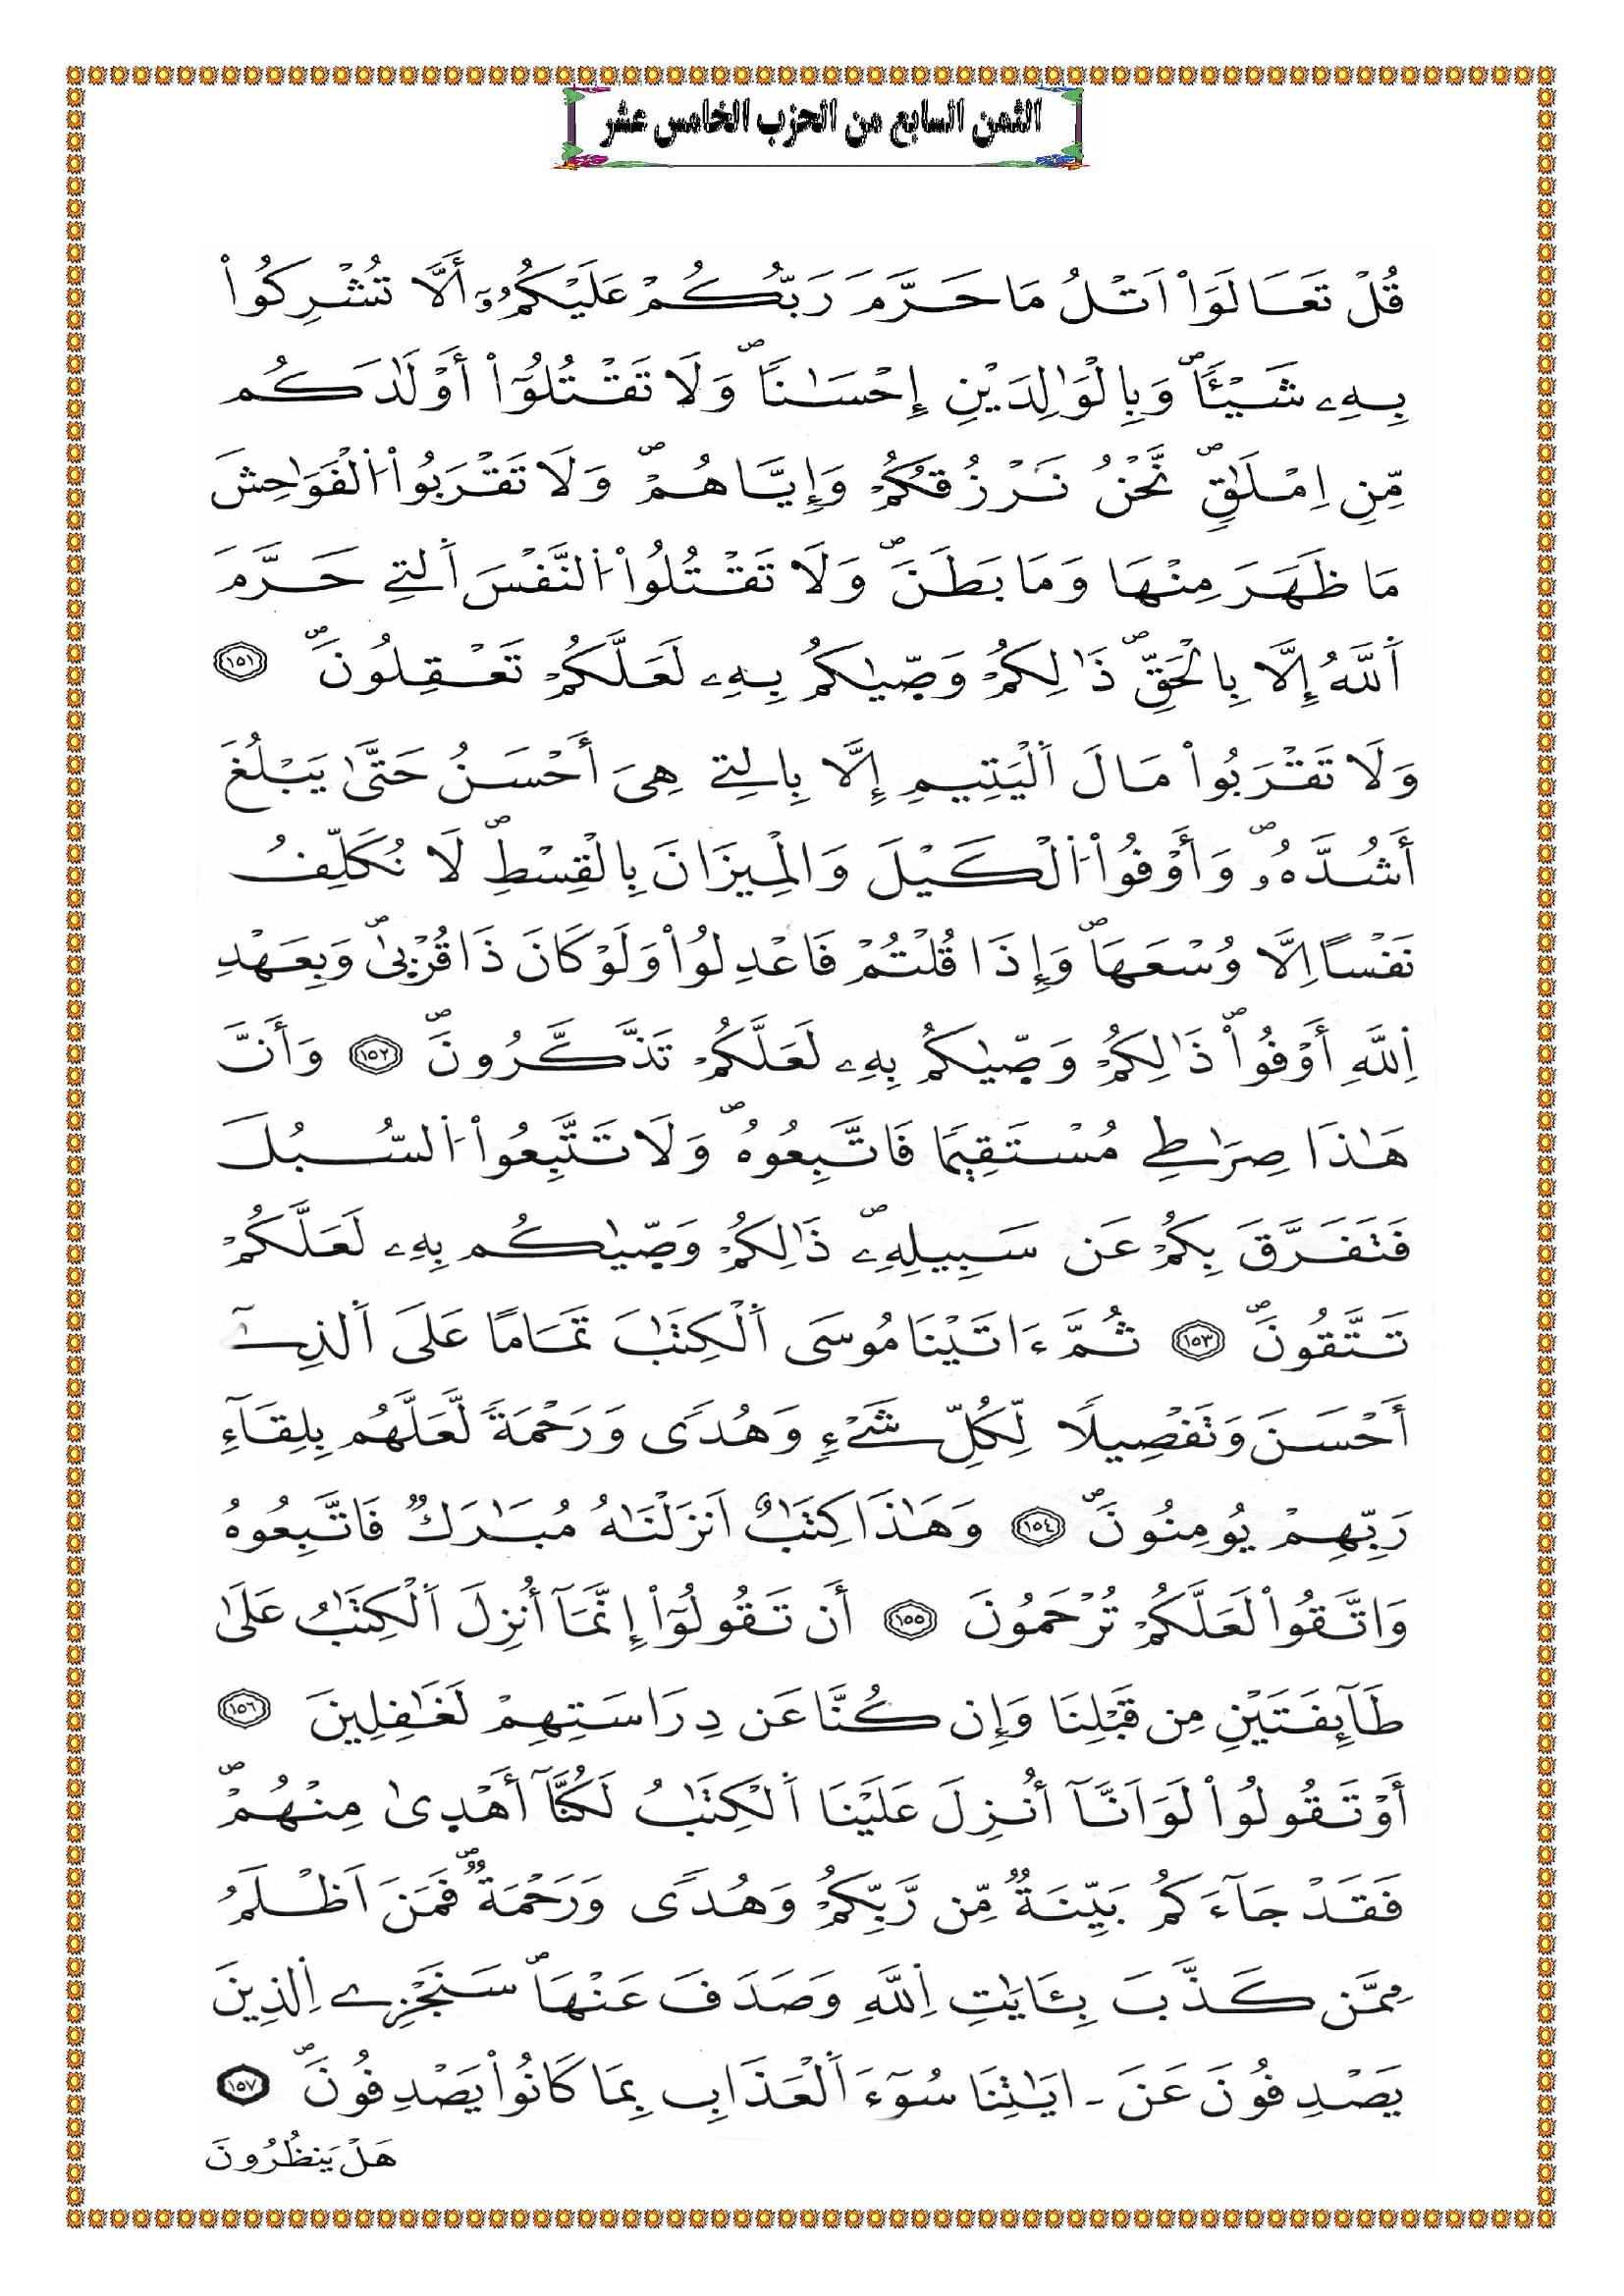 الثمن السابع من الحزب الخامس عشر
قُلْ تَعَالَوَاْ اَتْلُ مَا حَرَّمَ رَبُّكُمْ عَلَيْكُمُۥٓ أَلَّا تُشْرِكُواْ
بِهِۦ شَيْـٔاًۖ وَبِالْوَٰلِدَيْنِ إِحْسَٰناًۖ وَلَا تَقْتُلُوٓاْ أَوْلَٰدَكُم
مِّنِ اِمْلَٰقٖۖ نَّحْنُ نَرْزُقُكُمْ وَإِيَّاهُمْۖ وَلَا تَقْرَبُواْ اُ۬لْفَوَٰحِشَ
مَا ظَهَرَ مِنْهَا وَمَا بَطَنَۖ وَلَا تَقْتُلُواْ اُ۬لنَّفْسَ اَ۬لتِے حَرَّمَ
اَ۬للَّهُ إِلَّا بِالْحَقِّۖ ذَٰلِكُمْ وَصّ۪يٰكُم بِهِۦ لَعَلَّكُمْ تَعْقِلُونَۖ ١٥١
وَلَا تَقْرَبُواْ مَالَ اَ۬لْيَتِيمِ إِلَّا بِالتِے هِيَ أَحْسَنُ حَتَّىٰ يَبْلُغَ
أَشُدَّهُۥۖ وَأَوْفُواْ اُ۬لْكَيْلَ وَالْمِيزَانَ بِالْقِسْطِۖ لَا نُكَلِّفُ
نَفْساً اِلَّا وُسْعَهَاۖ وَإِذَا قُلْتُمْ فَاعْدِلُواْ وَلَوْ كَانَ ذَا قُرْب۪ىٰۖ وَبِعَهْدِ
اِ۬للَّهِ أَوْفُواْۖ ذَٰلِكُمْ وَصّ۪يٰكُم بِهِۦ لَعَلَّكُمْ تَذَّكَّرُونَۖ ١٥٢ وَأَنَّ
هَٰذَا صِرَٰطِے مُسْتَقِيماً فَاتَّبِعُوهُۖ وَلَا تَتَّبِعُواْ اُ۬لسُّبُلَ
فَتَفَرَّقَ بِكُمْ عَن سَبِيلِهِۦۖ ذَٰلِكُمْ وَصّ۪يٰكُم بِهِۦ لَعَلَّكُمْ
تَتَّقُونَۖ ١٥٣ ثُمَّ ءَاتَيْنَا مُوسَى اَ۬لْكِتَٰبَ تَمَاماً عَلَى اَ۬لذِےٓ
أَحْسَنَ وَتَفْصِيلاً لِّكُلِّ شَےْءٖ وَهُدىً وَرَحْمَةً لَّعَلَّهُم بِلِقَآءِ
رَبِّهِمْ يُومِنُونَۖ ١٥٤ وَهَٰذَا كِتَٰبٌ اَنزَلْنَٰهُ مُبَٰرَكٞ فَاتَّبِعُوهُ
وَاتَّقُواْ لَعَلَّكُمْ تُرْحَمُونَ ١٥٥ أَن تَقُولُوٓاْ إِنَّمَآ أُنزِلَ اَ۬لْكِتَٰبُ عَلَىٰ
طَآئِفَتَيْنِ مِن قَبْلِنَا وَإِن كُنَّا عَن دِرَاسَتِهِمْ لَغَٰفِلِينَ ١٥٦
أَوْ تَقُولُواْ لَوَ اَنَّآ أُنزِلَ عَلَيْنَا اَ۬لْكِتَٰبُ لَكُنَّآ أَهْد۪ىٰ مِنْهُمْۖ
فَقَدْ جَآءَكُم بَيِّنَةٞ مِّن رَّبِّكُمْ وَهُدىً وَرَحْمَةٞۖ فَمَنَ اَظْلَمُ
مِمَّن كَذَّبَ بِـَٔايَٰتِ اِ۬للَّهِ وَصَدَفَ عَنْهَاۖ سَنَجْزِے اِ۬لذِينَ
يَصْدِفُونَ عَنَ ـ ايَٰتِنَا سُوٓءَ اَ۬لْعَذَابِ بِمَا كَانُواْ يَصْدِفُونَۖ ١٥٧
هَلْ يَنظُرُونَ